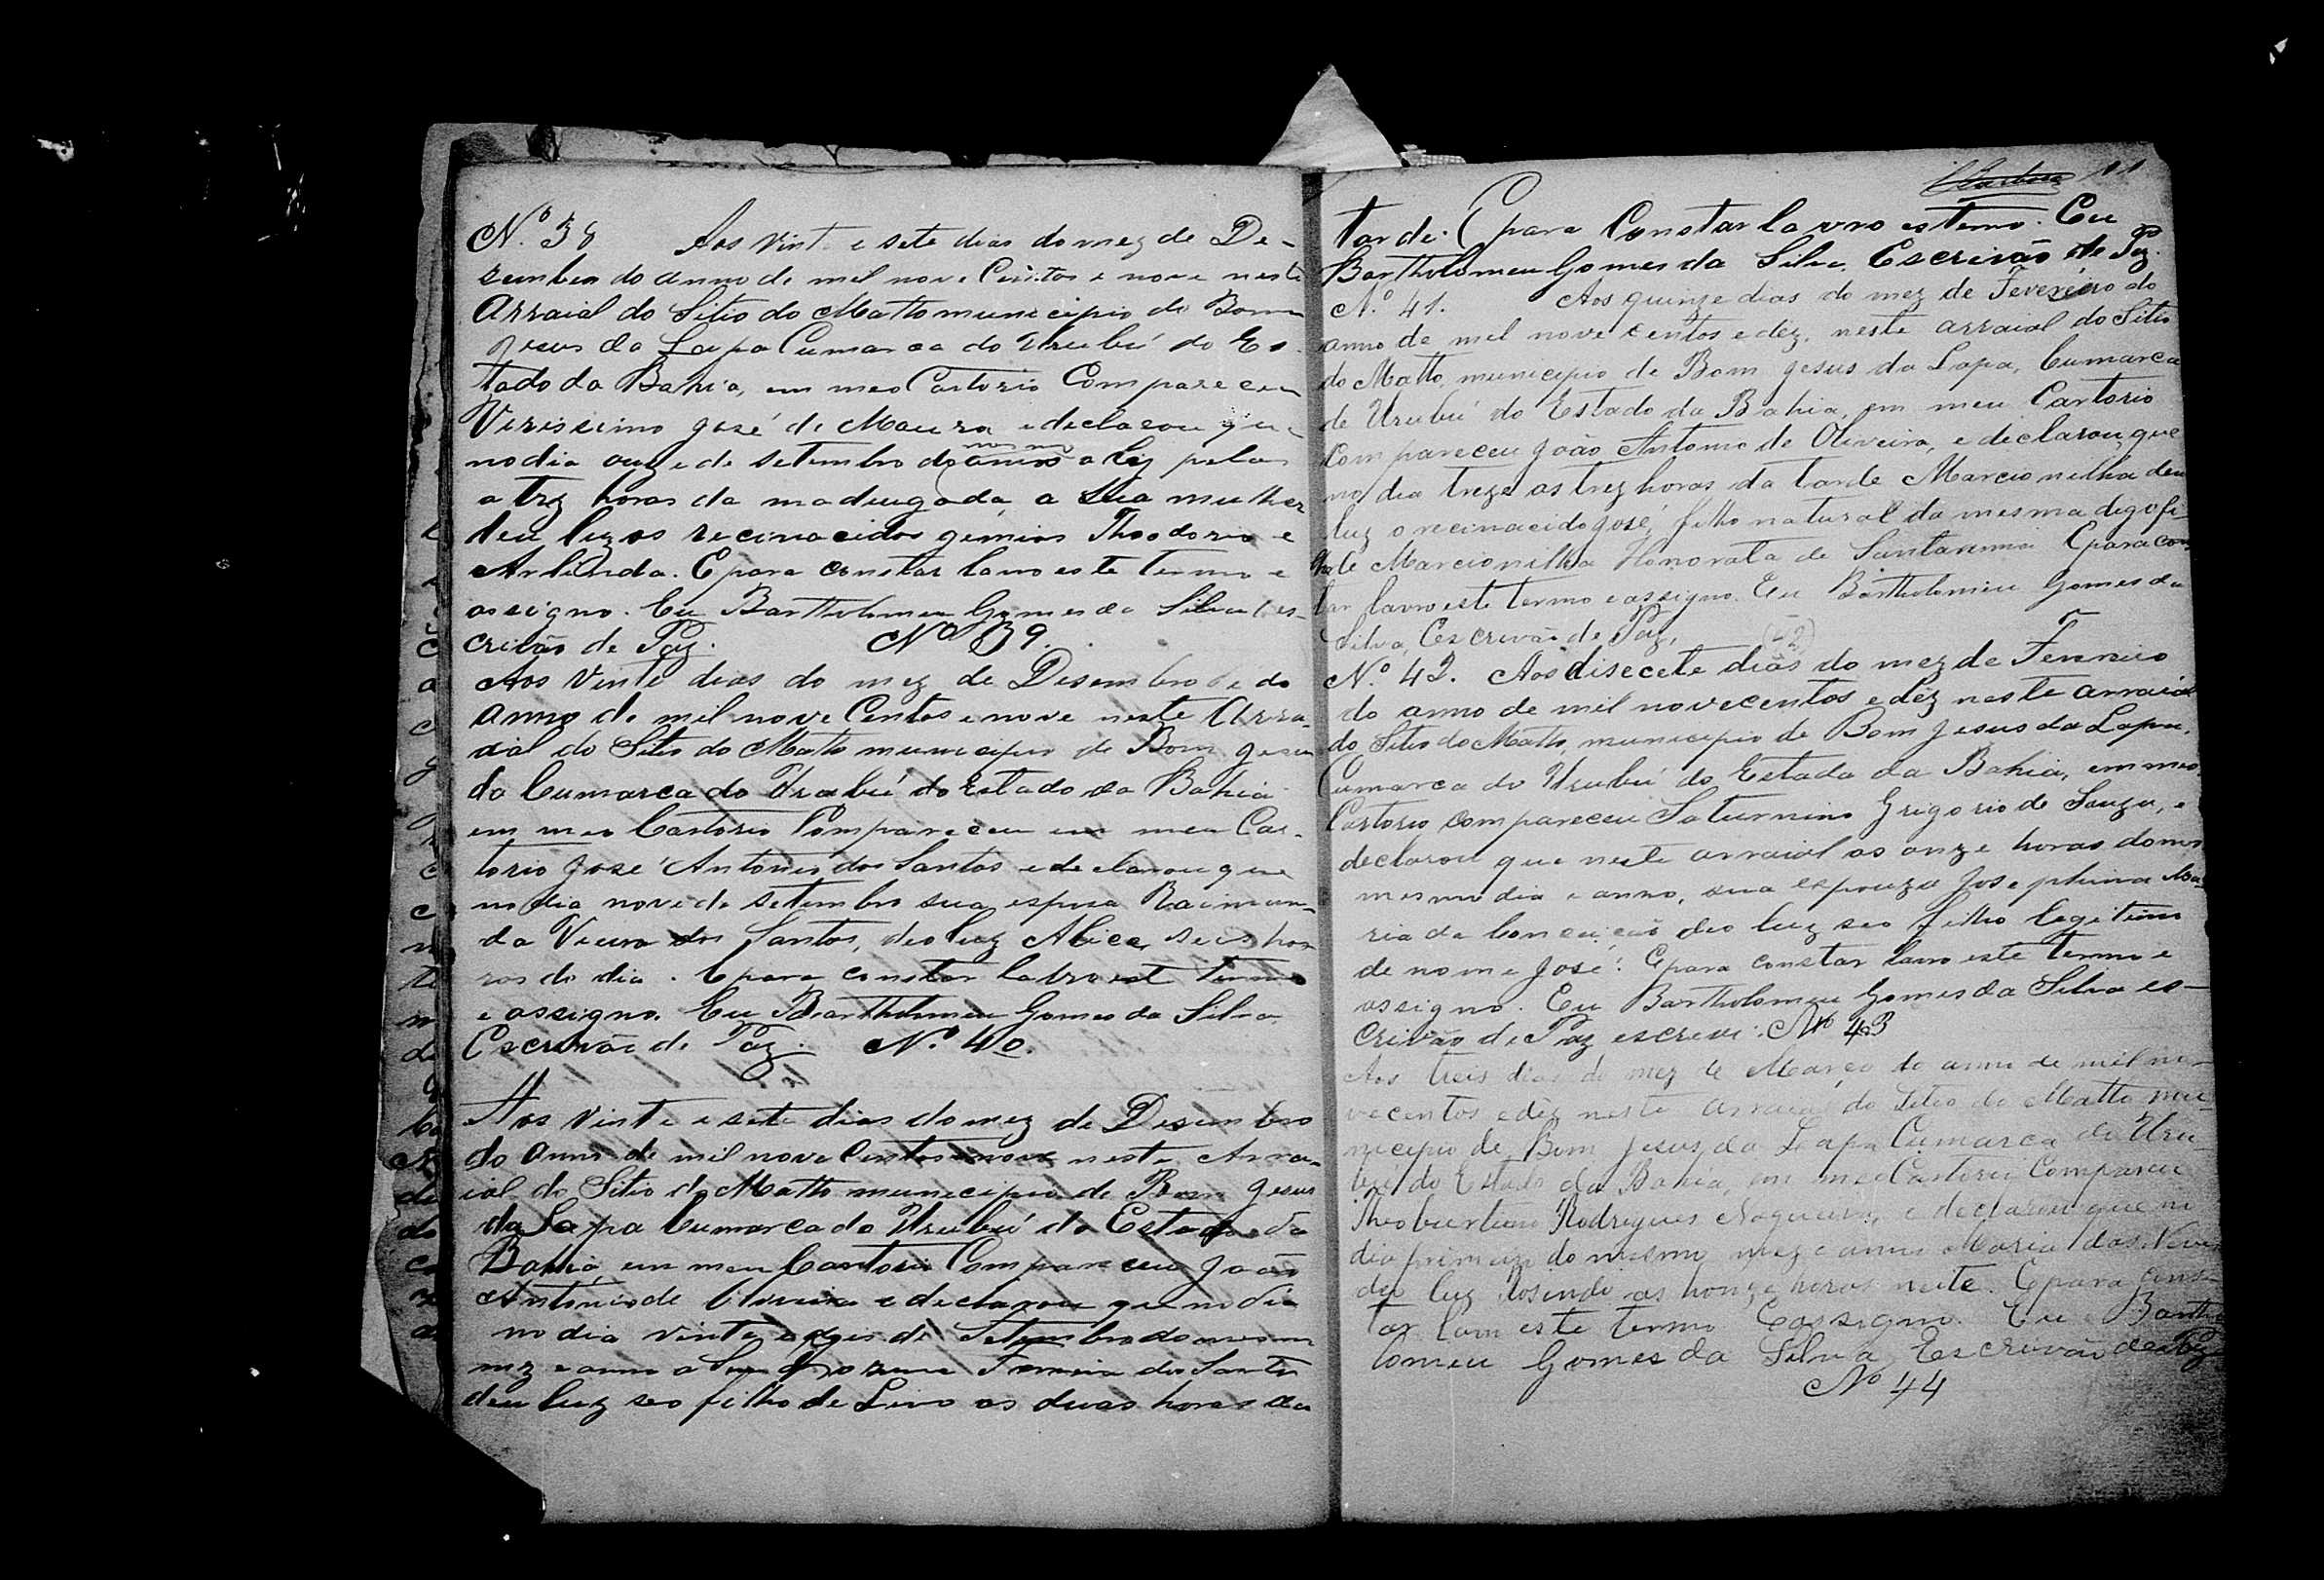 Nº 38 Aos vinte e sete dias do mez de De-
zembro do anno de mil nove Centos e nove neste
Arraial do Sitio do Matto municipio do Bom
Jesus da Lapa Cumarca do Urubú do Es-
tado da Bahia, em meo Cartorio Compareceu
Virissimo José de Moura e declarou que
no dia onze de setembro do anno a luz pelas
a trez horas da madrugada, a sua mulher
deu luz os recinacidos gemios Theodorio e
Arlinda. E para constar lavro este termo e
assigno. Eu Bartholomeu Gomes da Silva Es-
crivão de Paz. Nº 39.
Aos vinte dias do mez de Desembro do
anno de mil nove Centos e nove neste Arra-
ial do Sitio do Matto municipio de Bom Jesus
da Cumarca do Urubú do Estado da Bahia
em meo Cartorio Compareceu em meu Car-
torio José Antonio dos Santos e declarou que
no dia nove de setembro sua espoza Raimun-
da Vieira dos Santos, deo luz Alice, seis ho
ras do dia. E para constar lavro est termo
e assigno. Eu Bartholomeu Gomes da Silva
Escrivão de Paz. Nº 40.
Aos vinte e sete dias do mez de Desembro
do anno de mil nove Centos e nove neste Arra-
ial do Sitio do Matto municipio de Bom Jesus
da Lapa Cumarca do Urubú do Estado da
Bahia, em meu Cartorio Compareceu João
Antonio de Oliveira e declarou que no dia
no dia vinte e dois de Setembro do mesmo
mez e anno a Ferreira dos Santos
deu luz seo filho de Livo as duas horas da
11
tarde. E para Constar lavro este termo. Eu
Bartholomeu Gomes da Silva, Escrivão de Paz.
Nº 41. Aos quinze dias do mez de Fevereiro do
anno de mil nove centos e dez, neste arraial do Sitio
do Matto, municipio de Bom Jesus da Lapa, Cumarca
de Urubú do Estado da Bahia, em meu Cartorio
Compareceu João Antonio de Oliveira, e declarou que
no dia treze as trez horas da tarde Marcionilha deu
luz o recinacido José, filho natural da mesma digo fi-
lho de Marcionilha Honorata de Santanna E para cons
tar lavro este termo e assigno. Eu Bartholomeu Gomes da
Silva, Escrivão de Paz.
Nº 42. Aos disecete dias do mez de Fevereiro
do anno de mil novecentos e dez neste arraial
do Sitio do Matto, municipio de Bom Jesus da Lapa,
Cumarca do Urubú do Estado da Bahia, em meo
Cartorio compareceu Saturnino Grigorio de Souza, e
declarou que neste arraial as onze horas do mes
mesmo dia e anno, sua espouza Josephina Ma-
ria da Conceição deo luz seo filho legitimo
de nome José. E para constar lavro este termo e
assigno. Eu Bartholomeu Gomes da Silva es-
crivão de Paz escrevi. Nº 43
Aos treis dias do mez de Março do anno de mil no-
vecentos e dez neste arraial do Sitio do Matto mu-
nicipio de Bom Jesus da Lapa Cumarca do Uru-
bú do Estado da Bahia, em meo Cartorio Compareceu
Theoburtino Rodrigues Nogueira, e declarou que no
dia primeiro do mesmo mez e anno Maria das Neves
deu luz Rosendo as honze horas noite. E para cons-
tar lavro este termo E assigno. Eu Bartho
lomeu Gomes da Silva, Escrivão de Paz
Nº 44